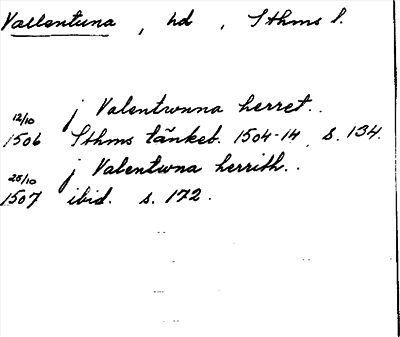 Vallentuna , hd , Sthms l.
j Valentwnna herret..
12/10 1506 Sthms tänkeb. 1504-14, s. 134.
j Valentwna herrith..
25/10 1507 ibid. s. 172.